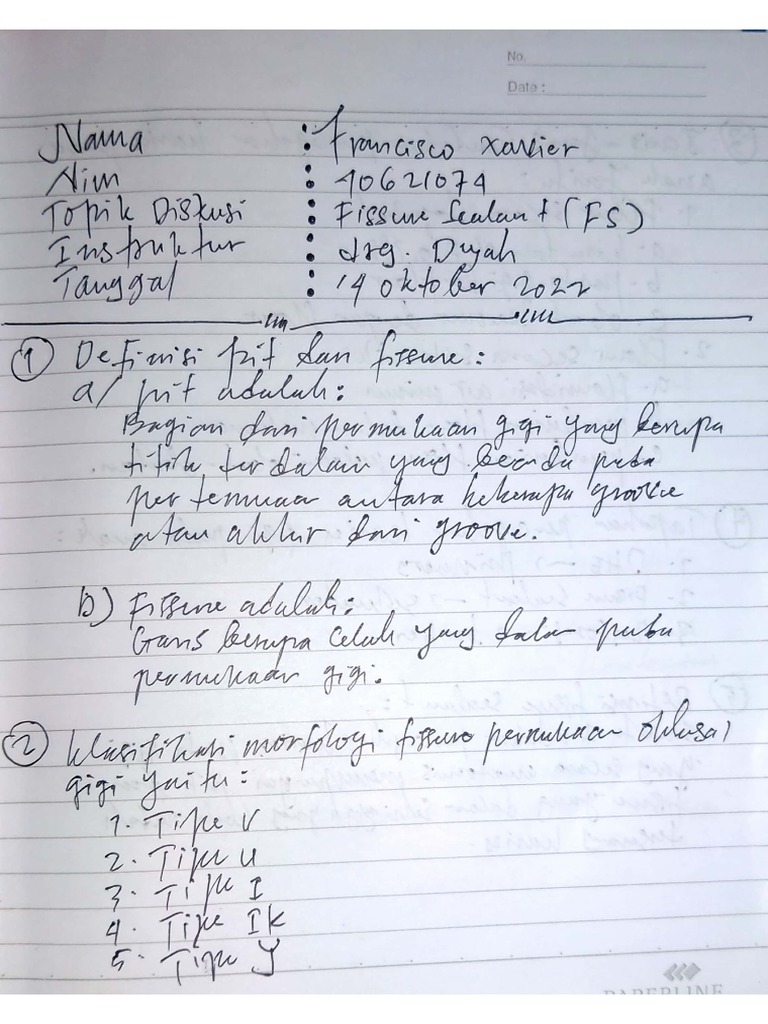 No.
Date :
Nama : Francisco Xavier
Nim : 10621074
Topik Diskusi : Fissure Sealant (FS)
Instruktur : drg. Dyah
Tanggal : 14 Oktober 2022
1 Definisi pit dan fissure :
a/ pit adalah :
Bagian dari permukaan gigi yang berupa
titik terdalam yang berada pada
pertemuan antara beberapa groove
atau akhir dari groove.
b) Fissure adalah :
Garis berupa celah yang dalam pada
permukaan gigi.
2 Klasifikasi morfologi fissure permukaan oklusal
gigi yaitu :
1. Tipe V
2. Tipe U
3. Tipe I
4. Tipe IK
5. Tipe Y
PAPERLINE